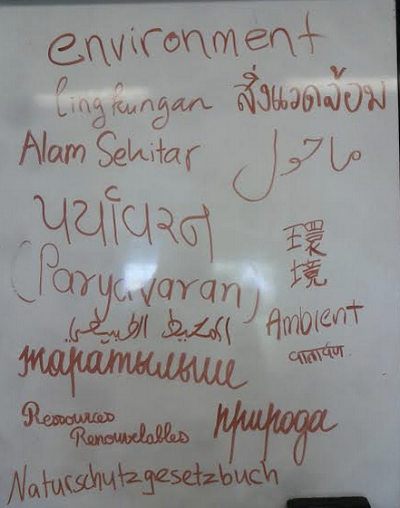 environment
lingkungan สิ่งแวดล้อม
Alam Sekitar ماحول
પર્યાવરન
(Paryavaran)
環
境
المحيط الطبيعي Ambient
жаратылыш
Ressources природа
Renouvelables
Naturschutzgesetzbuch